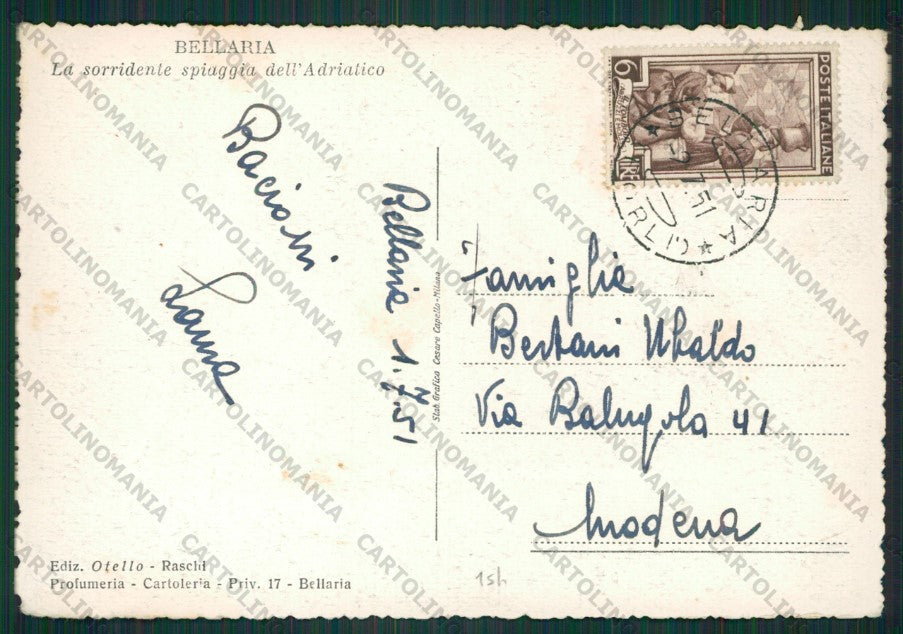 BELLARIA
La sorridente spiaggia dell'Adriatico
POSTE ITALIANE
6
LIRE
BELLARIA
7.51
Bacioni
Bellaria 1.7.51
Stab. Grafico Cesare Capello-Milano
Famiglia
Bertani Ubaldo
Via Balugola 41
Modena
Ediz. Otello - Raschi
Profumeria - Cartoleria - Priv. 17 - Bellaria
1sh
CARTOLINOMANIA